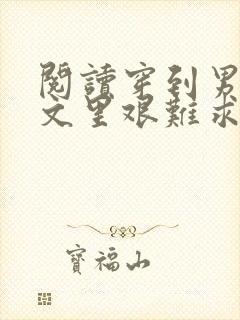 閱讀穿到男
文里艰難求
寶福山